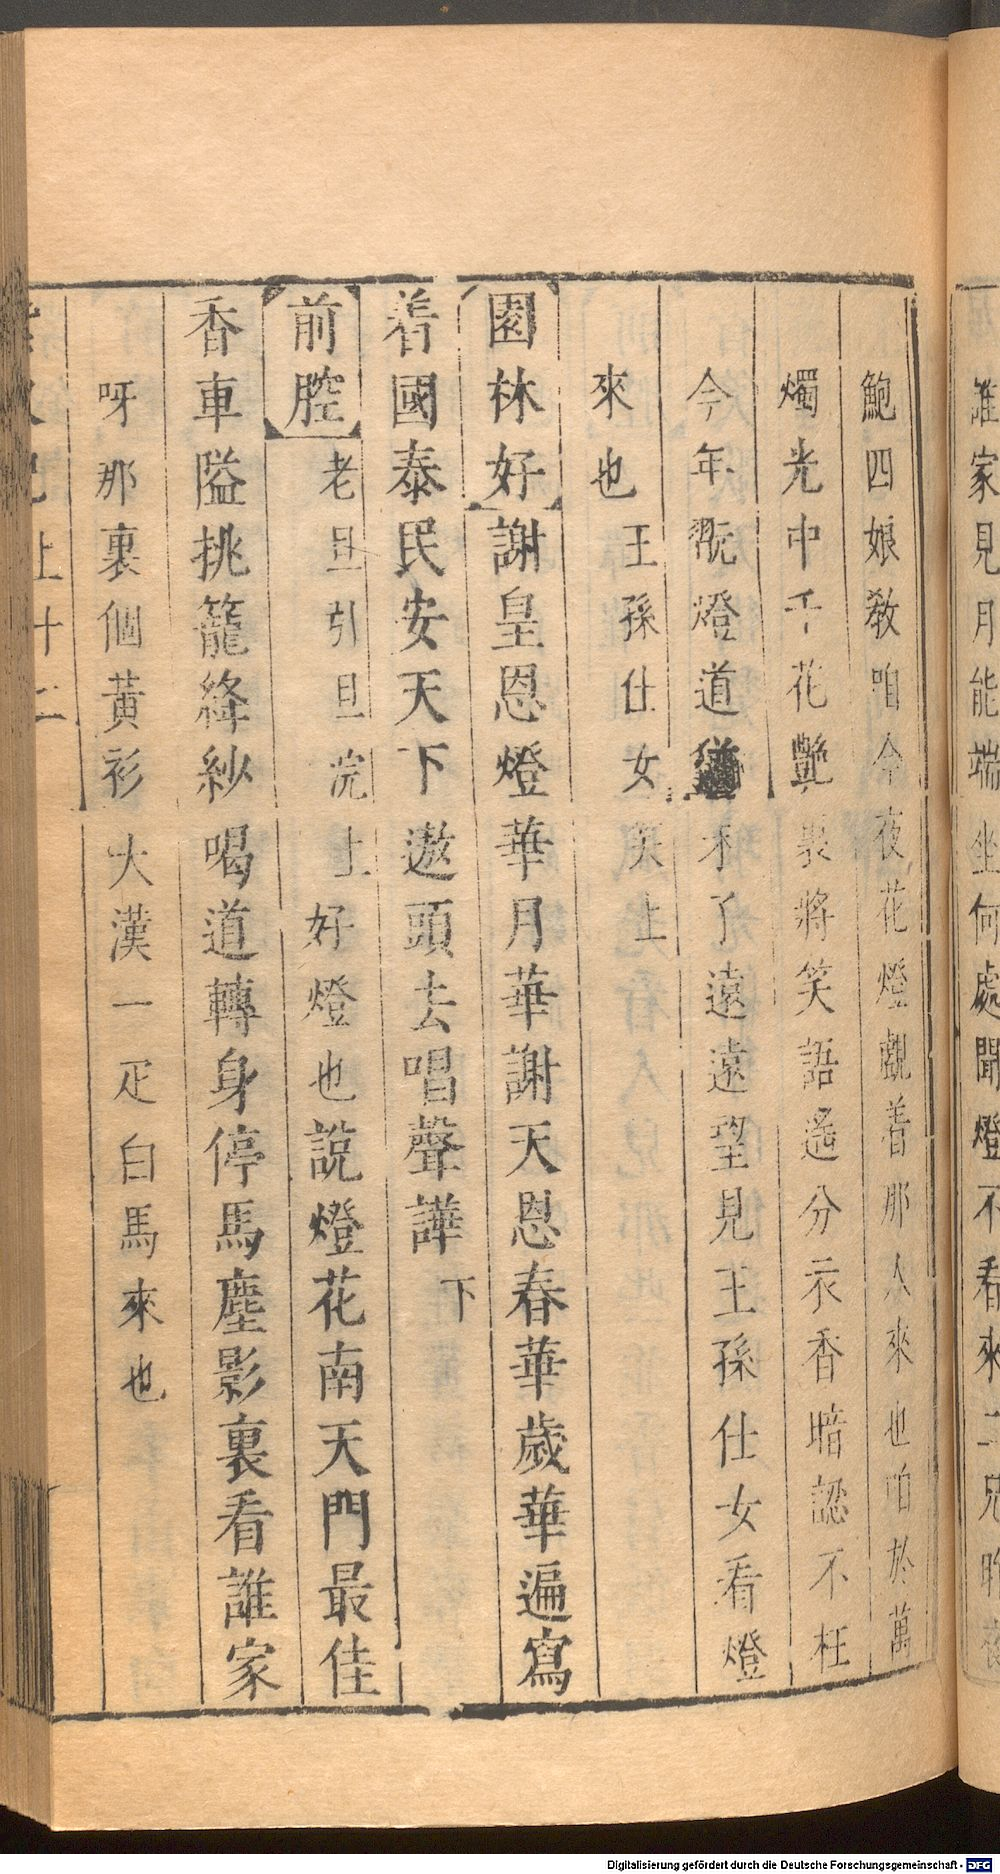 誰家見月能端坐何處聞燈不看來二兄昨夜
鮑四娘教咱今夜花燈覷着那人來也咱於萬
燭光中千花艷裏將笑語遙分衣香暗認不枉
今年翫燈道猶未了遠遠望見王孫仕女看燈
來也王孫仕女笑上
園林好謝皇恩燈華月華謝天恩春華歲華遍寫
着國泰民安天下遨頭去唱聲譁下
前腔老旦引旦浣上好燈也說燈花南天門最佳
香車隘挑籠絳紗喝道轉身停馬塵影裏看誰家
呀那裏個黃衫大漢一疋白馬來也
上十二
Digitalisierung gefördert durch die Deutsche Forschungsgemeinschaft - DFG